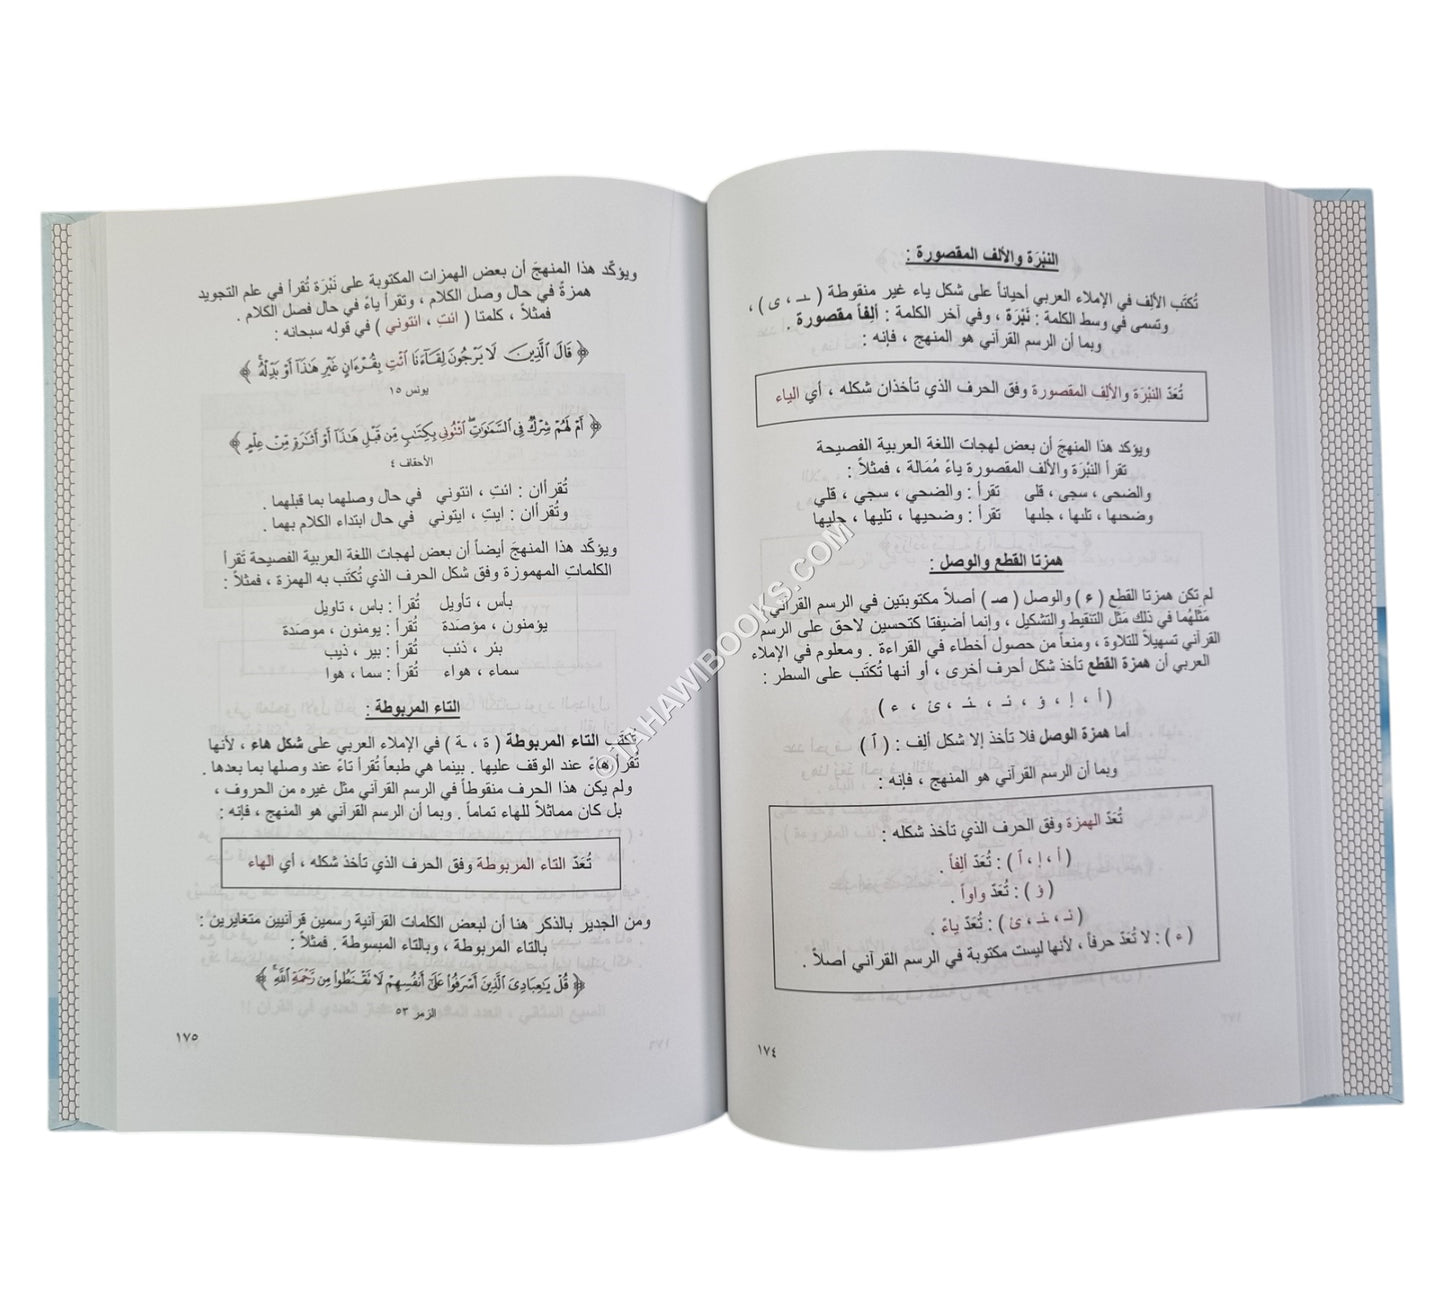 النبْرَة والألف المقصورة :
تُكتَب الألِف في الإملاء العربي أحياناً على شكل ياء غير منقوطة ( ـىـ ، ى ) ،
وتسمى في وسط الكلمة : نَبْرَة ، وفي آخر الكلمة : ألِفاً مقصورة .
وبما أن الرسم القرآني هو المنهج ، فإنه :
تُعَدّ النبْرَة والألِف المقصورة وفق الحرف الذي تأخذان شكله ، أي الياء
ويؤكد هذا المنهجَ أن بعض لهجات اللغة العربية الفصيحة
تقرأ النبْرَة والألف المقصورة ياءً مُمَالة ، فمثلاً :
والضحى ، سجى ، قلى تقرأ : والضحي ، سجي ، قلي
وضحىها ، تلىها ، جلىها تقرأ : وضحيها ، تليها ، جليها
همزتا القطع والوصل :
لم تكن همزتا القطع ( ء ) والوصل ( صـ ) أصلاً مكتوبتين في الرسم القرآني
مَثَلُهُما في ذلك مَثَلُ التنقيط والتشكيل ، وإنما أضيفتا كتحسين لاحق على الرسم
القرآني تسهيلاً للتلاوة ، ومنعاً من حصول أخطاء في القراءة . ومعلوم في الإملاء
العربي أن همزة القطع تأخذ شكل أحرف أخرى ، أو أنها تُكتَب على السطر :
( أ ، إ ، ؤ ، ئـ ، ـئـ ، ئ ، ء )
أما همزة الوصل فلا تأخذ إلا شكل ألِف : ( ٱ )
وبما أن الرسم القرآني هو المنهج ، فإنه :
تُعَدّ الهمزة وفق الحرف الذي تأخذ شكله :
( أ ، إ ، ٱ ) : تُعَدّ ألِفاً .
( ؤ ) : تُعَدّ واواً .
( ئـ ، ـئـ ، ئ ) : تُعَدّ ياءً .
( ء ) : لا تُعَدّ حرفاً ، لأنها ليست مكتوبة في الرسم القرآني أصلاً .
١٧٤
ويؤكّد هذا المنهجَ أن بعض الهمزات المكتوبة على نَبْرَة تُقرأ في علم التجويد
همزةً في حال وصل الكلام ، وتقرأ ياءً في حال فصل الكلام .
فمثلاً ، كلمتا ( ائتِ ، ائتوني ) في قوله سبحانه :
﴿ قَالَ ٱلَّذِينَ لَا يَرْجُونَ لِقَآءَنَا ٱئْتِ بِقُرْءَانٍ غَيْرِ هَـٰذَآ أَوْ بَدِّلْهُ ۚ ﴾
يونس ١٥
﴿ أَمْ لَهُمْ شِرْكٌ فِى ٱلسَّمَـٰوَٰتِ ۖ ٱئْتُونِى بِكِتَـٰبٍ مِّن قَبْلِ هَـٰذَآ أَوْ أَثَـٰرَةٍ مِّنْ عِلْمٍ ﴾
الأحقاف ٤
تُقرأان : ائتِ ، ائتوني في حال وصلهما بما قبلهما .
وتُقرأان : ايتِ ، ايتوني في حال ابتداء الكلام بهما .
ويؤكّد هذا المنهجَ أيضاً أن بعض لهجات اللغة العربية الفصيحة تَقرأ
الكلماتِ المهموزة وفق شكل الحرف الذي تُكتَب به الهمزة ، فمثلاً :
بأس ، تأويل تُقرأ : باس ، تاويل
يؤمنون ، مؤصَدة تُقرأ : يومنون ، موصَدة
بئر ، ذئب تُقرأ : بير ، ذيب
سماء ، هواء تُقرأ : سما ، هوا
التاء المربوطة :
تُكتَب التاء المربوطة ( ة ، ـة ) في الإملاء العربي على شكل هاء ، لأنها
تُقرأ هاءً عند الوقف عليها . بينما هي طبعاً تُقرأ تاءً عند وصلها بما بعدها .
ولم يكن هذا الحرف منقوطاً في الرسم القرآني مثل غيره من الحروف ،
بل كان مماثلاً للهاء تماماً . وبما أن الرسم القرآني هو المنهج ، فإنه :
تُعَدّ التاء المربوطة وفق الحرف الذي تأخذ شكله ، أي الهاء
ومن الجدير بالذكر هنا أن لبعض الكلمات القرآنية رسمين قرآنيين متغايرين :
بالتاء المربوطة ، وبالتاء المبسوطة . فمثلاً :
﴿ قُلْ يَـٰعِبَادِىَ ٱلَّذِينَ أَسْرَفُوا۟ عَلَىٰٓ أَنفُسِهِمْ لَا تَقْنَطُوا۟ مِن رَّحْمَةِ ٱللَّهِ ۚ ﴾
الزمر ٥٣
١٧٥
©TAHAWIBOOKS.COM